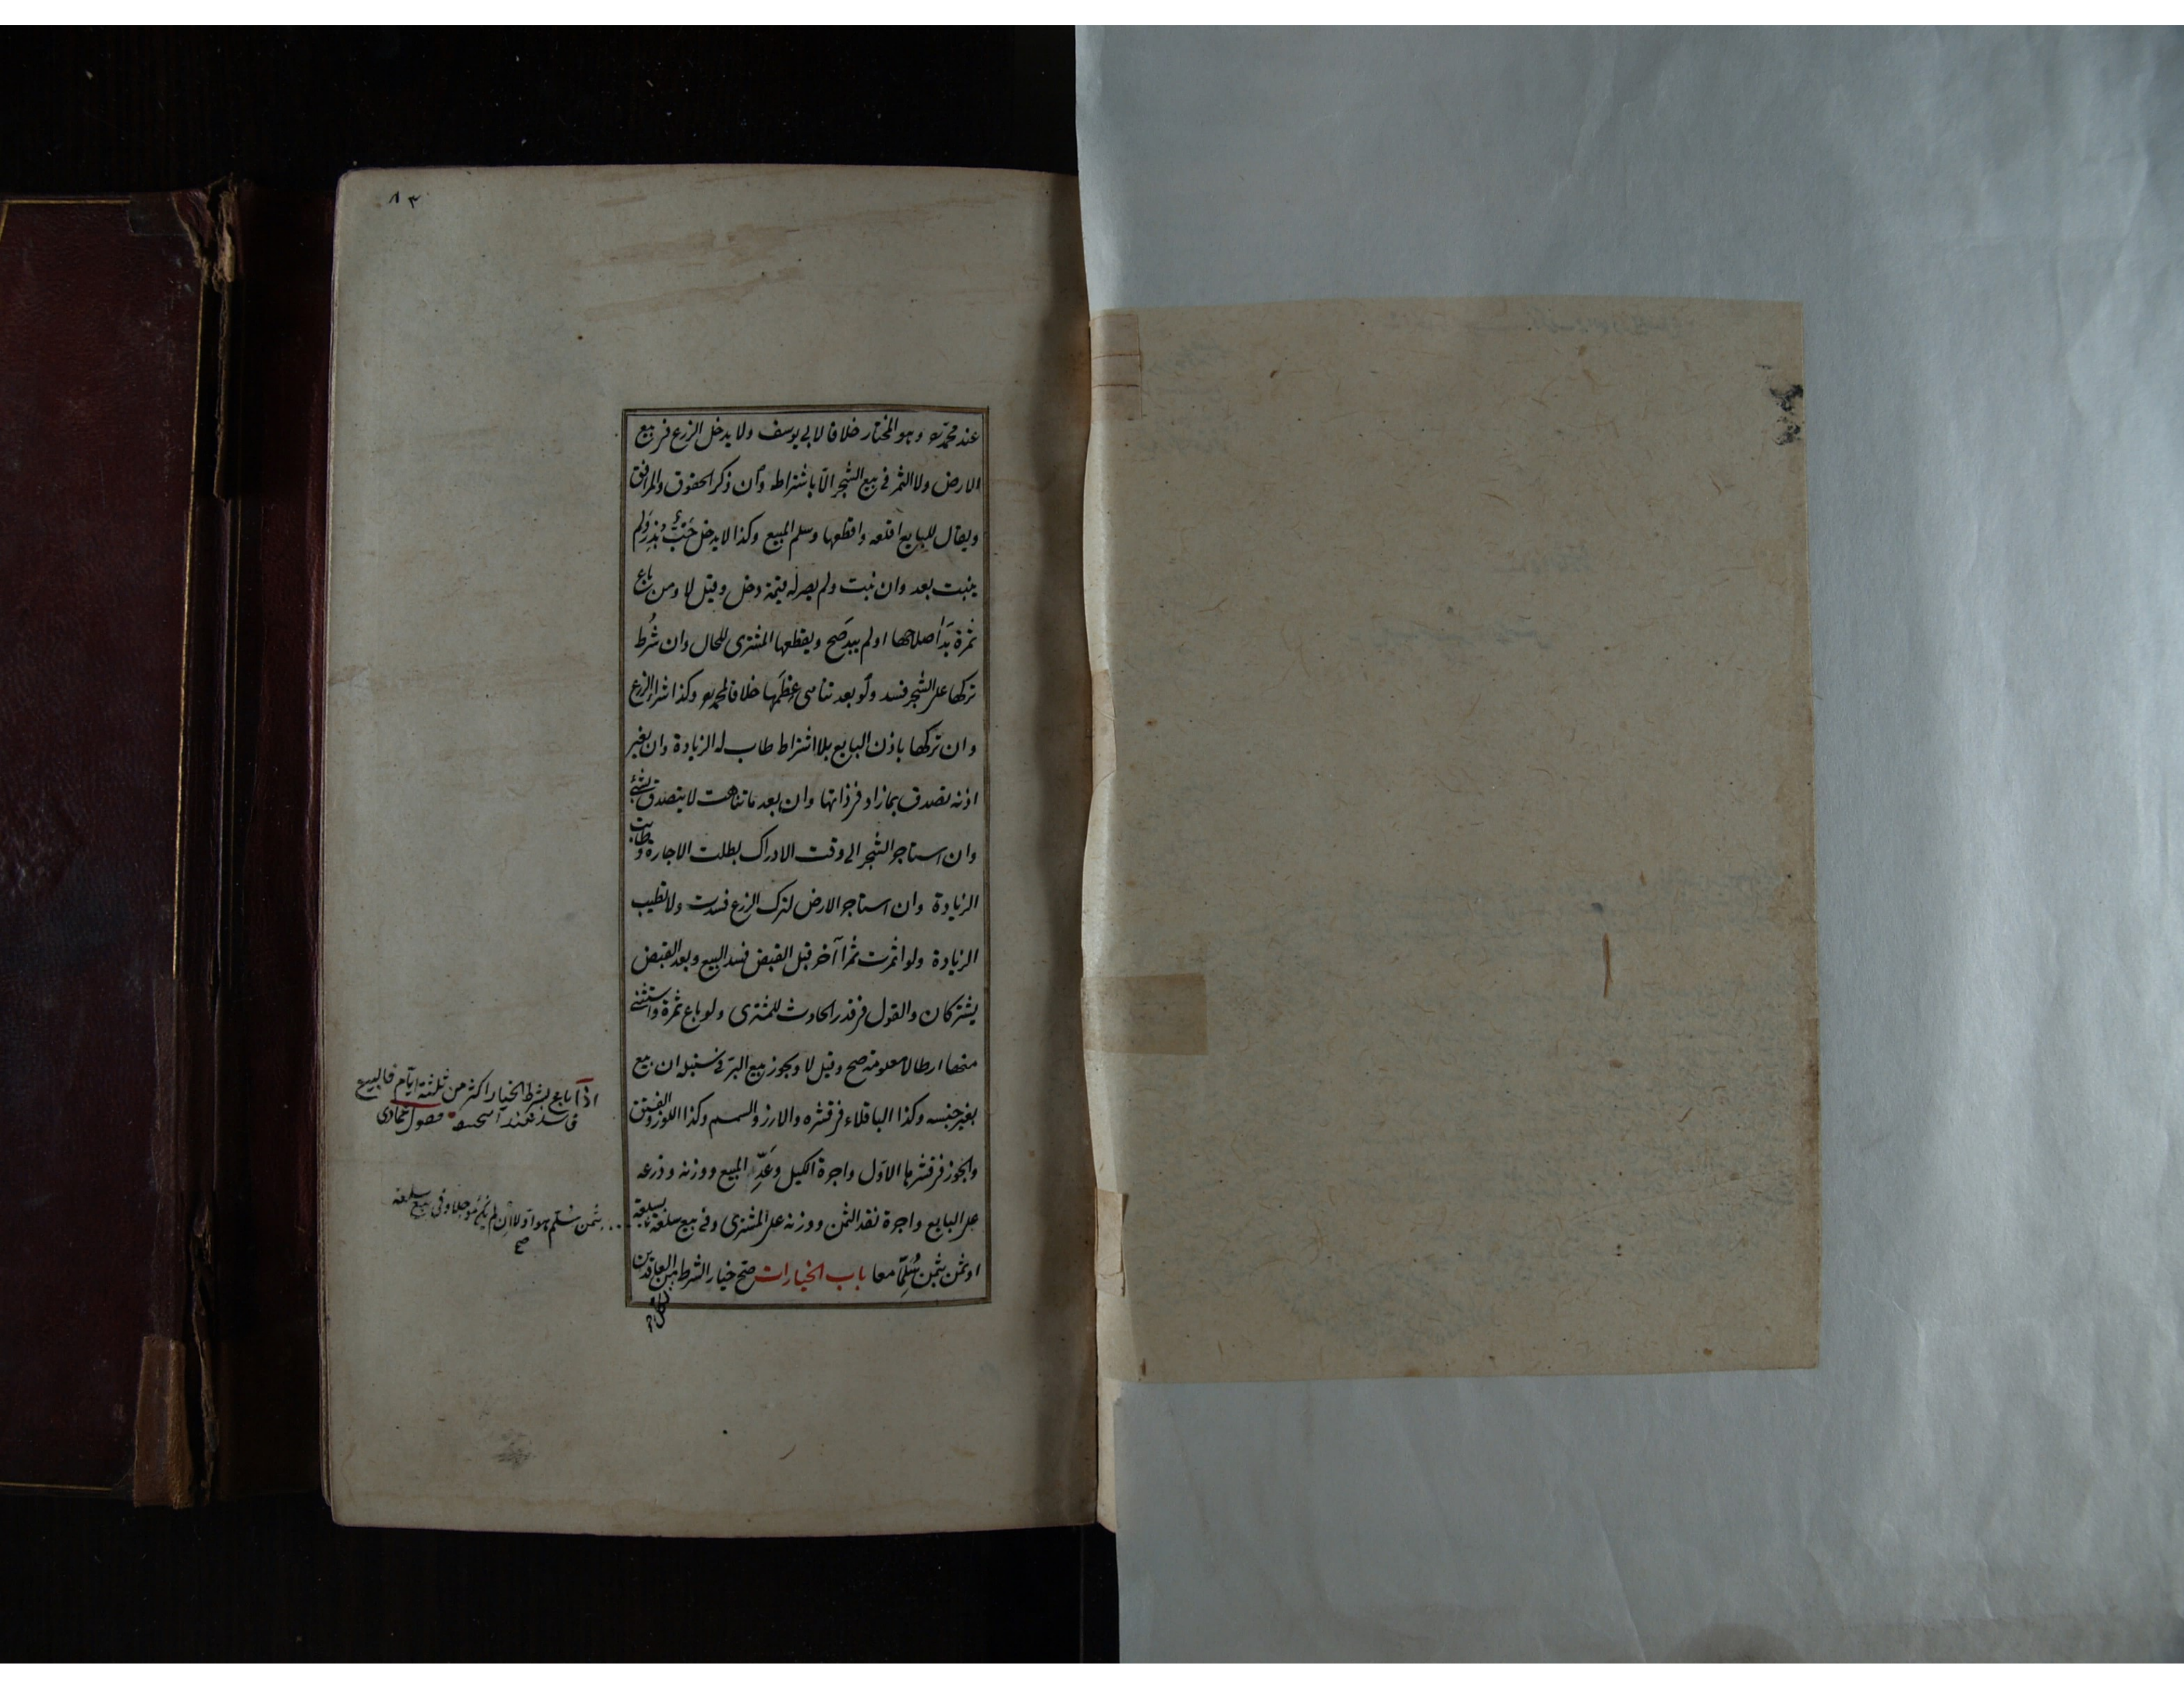 ٨٣
عند محمد رح وهو المختار خلافا لابي يوسف ولا يدخل الزرع في بيع
الارض ولا الثمر في بيع الشجر الّا باشتراطه وان ذكر الحقوق والمرافق
ويقال للبايع اقلعه واقطعها وسلم المبيع وكذا لا يدخل حَبٌّ بُذِرَ ولم
ينبت بعد وان نبت ولم يصر له قيمة دخل وقيل لا ومن باع
ثمرة بَدَا صلاحها او لم يبدُ صَح ويقطعها المشترى للحال وان شُرط
تركها على الشجر فسد ولو بعد تناهى عِظَمِها خلافا لمحمد رح وكذا شراء الزرع
وان تركها باذن البايع بلا اشتراط طاب له الزيادة وان بغير
اذنه تصدق بما زاد في ذاتها وان بعد ما تناهت لا يتصدق بشئ
وان استاجر الشجر الى وقت الادراك بطلت الاجارة وطابت
الزيادة وان استاجر الارض لترك الزرع فسدت ولا تطيب
الزيادة ولو اثمرت ثمرا آخر قبل القبض فسد البيع وبعد القبض
يشتركان والقول في قدر الحادث للمشترى ولو باع ثمرة واستثنى
منها ارطالا معلومة صح وقيل لا ويجوز بيع البرّ في سنبله ان بيع
بغير جنسه وكذا الباقلاء في قشره والارز والسمسم وكذا اللوز والفستق
والجوز في قشرها الاوّل واجرة الكيل وعَدِّ المبيع ووزنه وذرعه
على البايع واجرة نقد الثمن ووزنه على المشترى وفي بيع سلعة بسلعة
او ثمن بثمن سُلِّمَا معا باب الخيارات صَحّ خيار الشرط من العاقدين
لكل
اذا باع بشرط الخيار اكثر من ثلثة ايّام فالبيع
فاسد عند فصول عمادى
بثمن سُلّم هو اوّلا ان لم يكن مؤجلا وفي بيع سلعة
صح